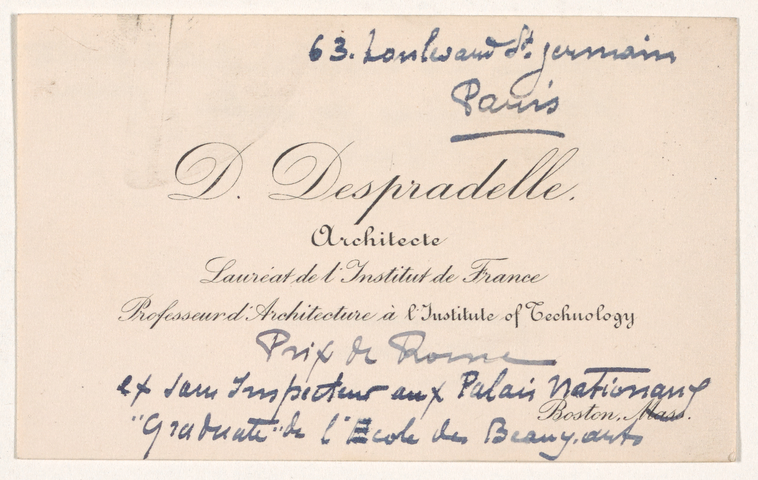 63. boulevard St. germain
Paris
D. Despradelle.
Architecte
Lauréat de l'Institut de France
Professeur d'Architecture à l'Institute of Technology
Prix de Rome
ex sous Inspecteur aux Palais Nationaux
Boston, Mass.
"Graduate" de l'Ecole des Beaux.arts